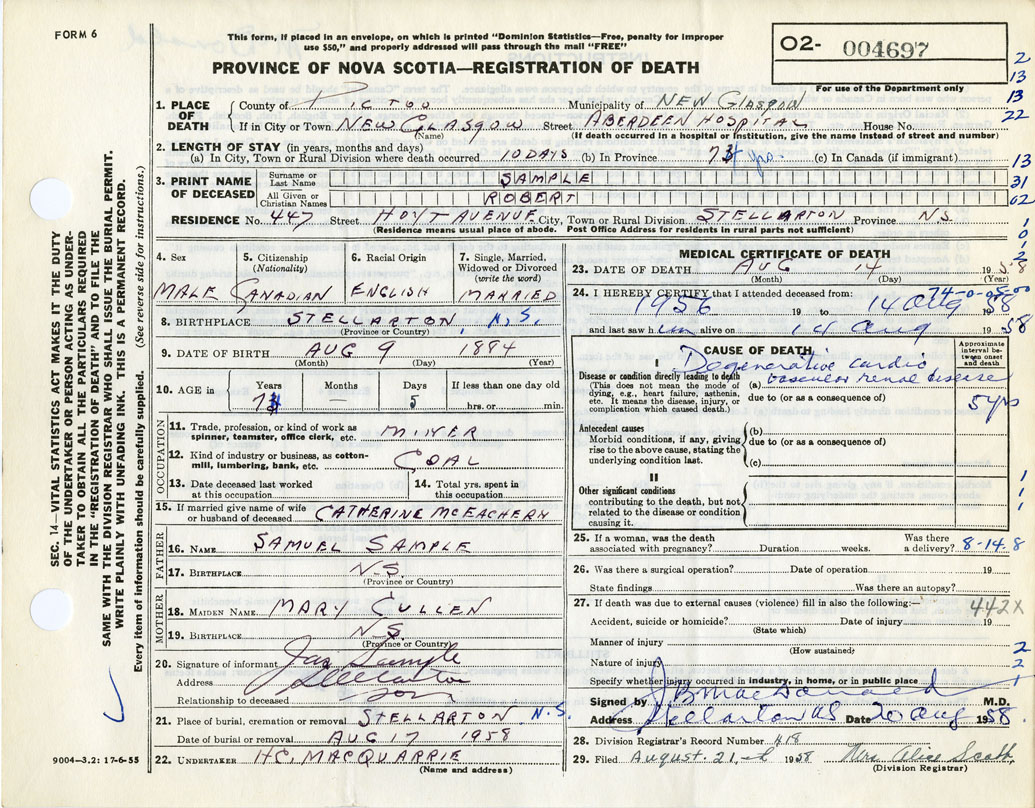 FORM 6
This form, if placed in an envelope, on which is printed "Dominion Statistics—Free, penalty for improper
use $50," and properly addressed will pass through the mail "FREE"
PROVINCE OF NOVA SCOTIA—REGISTRATION OF DEATH
O2- 004697
For use of the Department only
2
13
13
22
13
31
02
1
0
1
2
1. PLACE OF DEATH
County of PICTOU Municipality of NEW GLASGOW
If in City or Town NEW GLASGOW Street ABERDEEN HOSPITAL House No.
(Name) (If death occurred in a hospital or institution, give the name instead of street and number)
2. LENGTH OF STAY (in years, months and days)
(a) In City, Town or Rural Division where death occurred 10 DAYS (b) In Province 74 yrs. (c) In Canada (if immigrant)
3. PRINT NAME OF DECEASED
Surname or Last Name SAMPLE
All Given or Christian Names ROBERT
RESIDENCE No. 447 Street HOYT AVENUE City, Town or Rural Division STELLARTON Province N.S.
(Residence means usual place of abode. Post Office Address for residents in rural parts not sufficient)
4. Sex 5. Citizenship (Nationality) 6. Racial Origin 7. Single, Married, Widowed or Divorced (write the word)
MALE CANADIAN ENGLISH MARRIED
8. BIRTHPLACE STELLARTON, N.S.
(Province or Country)
9. DATE OF BIRTH AUG 9 1884
(Month) (Day) (Year)
10. AGE in Years Months Days If less than one day old
74 — 5 hrs. or min.
OCCUPATION
11. Trade, profession, or kind of work as spinner, teamster, office clerk, etc. MINER
12. Kind of industry or business, as cotton-mill, lumbering, bank, etc. COAL
13. Date deceased last worked at this occupation
14. Total yrs. spent in this occupation
15. If married give name of wife or husband of deceased CATHERINE McEACHERN
FATHER
16. NAME SAMUEL SAMPLE
17. BIRTHPLACE N.S.
(Province or Country)
MOTHER
18. MAIDEN NAME MARY CULLEN
19. BIRTHPLACE N.S.
(Province or Country)
20. Signature of informant Jas Sample
Address Stellarton
Relationship to deceased son
21. Place of burial, cremation or removal STELLARTON, N.S.
Date of burial or removal AUG 17 1958
22. UNDERTAKER H.C. MACQUARRIE
(Name and address)
9004—3.2: 17-6-55
SEC. 14—VITAL STATISTICS ACT MAKES IT THE DUTY
OF THE UNDERTAKER OR PERSON ACTING AS UNDER-
TAKER TO OBTAIN ALL THE PARTICULARS REQUIRED
IN THE "REGISTRATION OF DEATH" AND TO FILE THE
SAME WITH THE DIVISION REGISTRAR WHO SHALL ISSUE THE BURIAL PERMIT.
WRITE PLAINLY WITH UNFADING INK. THIS IS A PERMANENT RECORD.
Every item of information should be carefully supplied. (See reverse side for instructions.)
MEDICAL CERTIFICATE OF DEATH
23. DATE OF DEATH AUG 14 1958
(Month) (Day) (Year)
24. I HEREBY CERTIFY that I attended deceased from: 74-0-05-00
1956 19 to 14 Aug 1958
and last saw him alive on 14 Aug 1958
CAUSE OF DEATH
Approximate interval between onset and death
I
Disease or condition directly leading to death
(This does not mean the mode of dying, e.g., heart failure, asthenia, etc. It means the disease, injury, or complication which caused death.)
(a) Degenerative cardio vascular renal disease 5 yrs
due to (or as a consequence of)
Antecedent causes
Morbid conditions, if any, giving rise to the above cause, stating the underlying condition last.
(b)
due to (or as a consequence of)
(c)
II
Other significant conditions
contributing to the death, but not related to the disease or condition causing it.
1
1
1
25. If a woman, was the death associated with pregnancy? Duration weeks. Was there a delivery? 8-14-8
26. Was there a surgical operation? Date of operation 19
State findings Was there an autopsy?
27. If death was due to external causes (violence) fill in also the following:— 442X
Accident, suicide or homicide? Date of injury 19
(State which)
Manner of injury
(How sustained)
2
Nature of injury
2
Specify whether injury occurred in industry, in home, or in public place
1
Signed by J B MacDonald M.D.
Address Stellarton NS Date 20 Aug 1958.
28. Division Registrar's Record Number 418
29. Filed August 21 1958 Mrs Alice Scott
(Division Registrar)